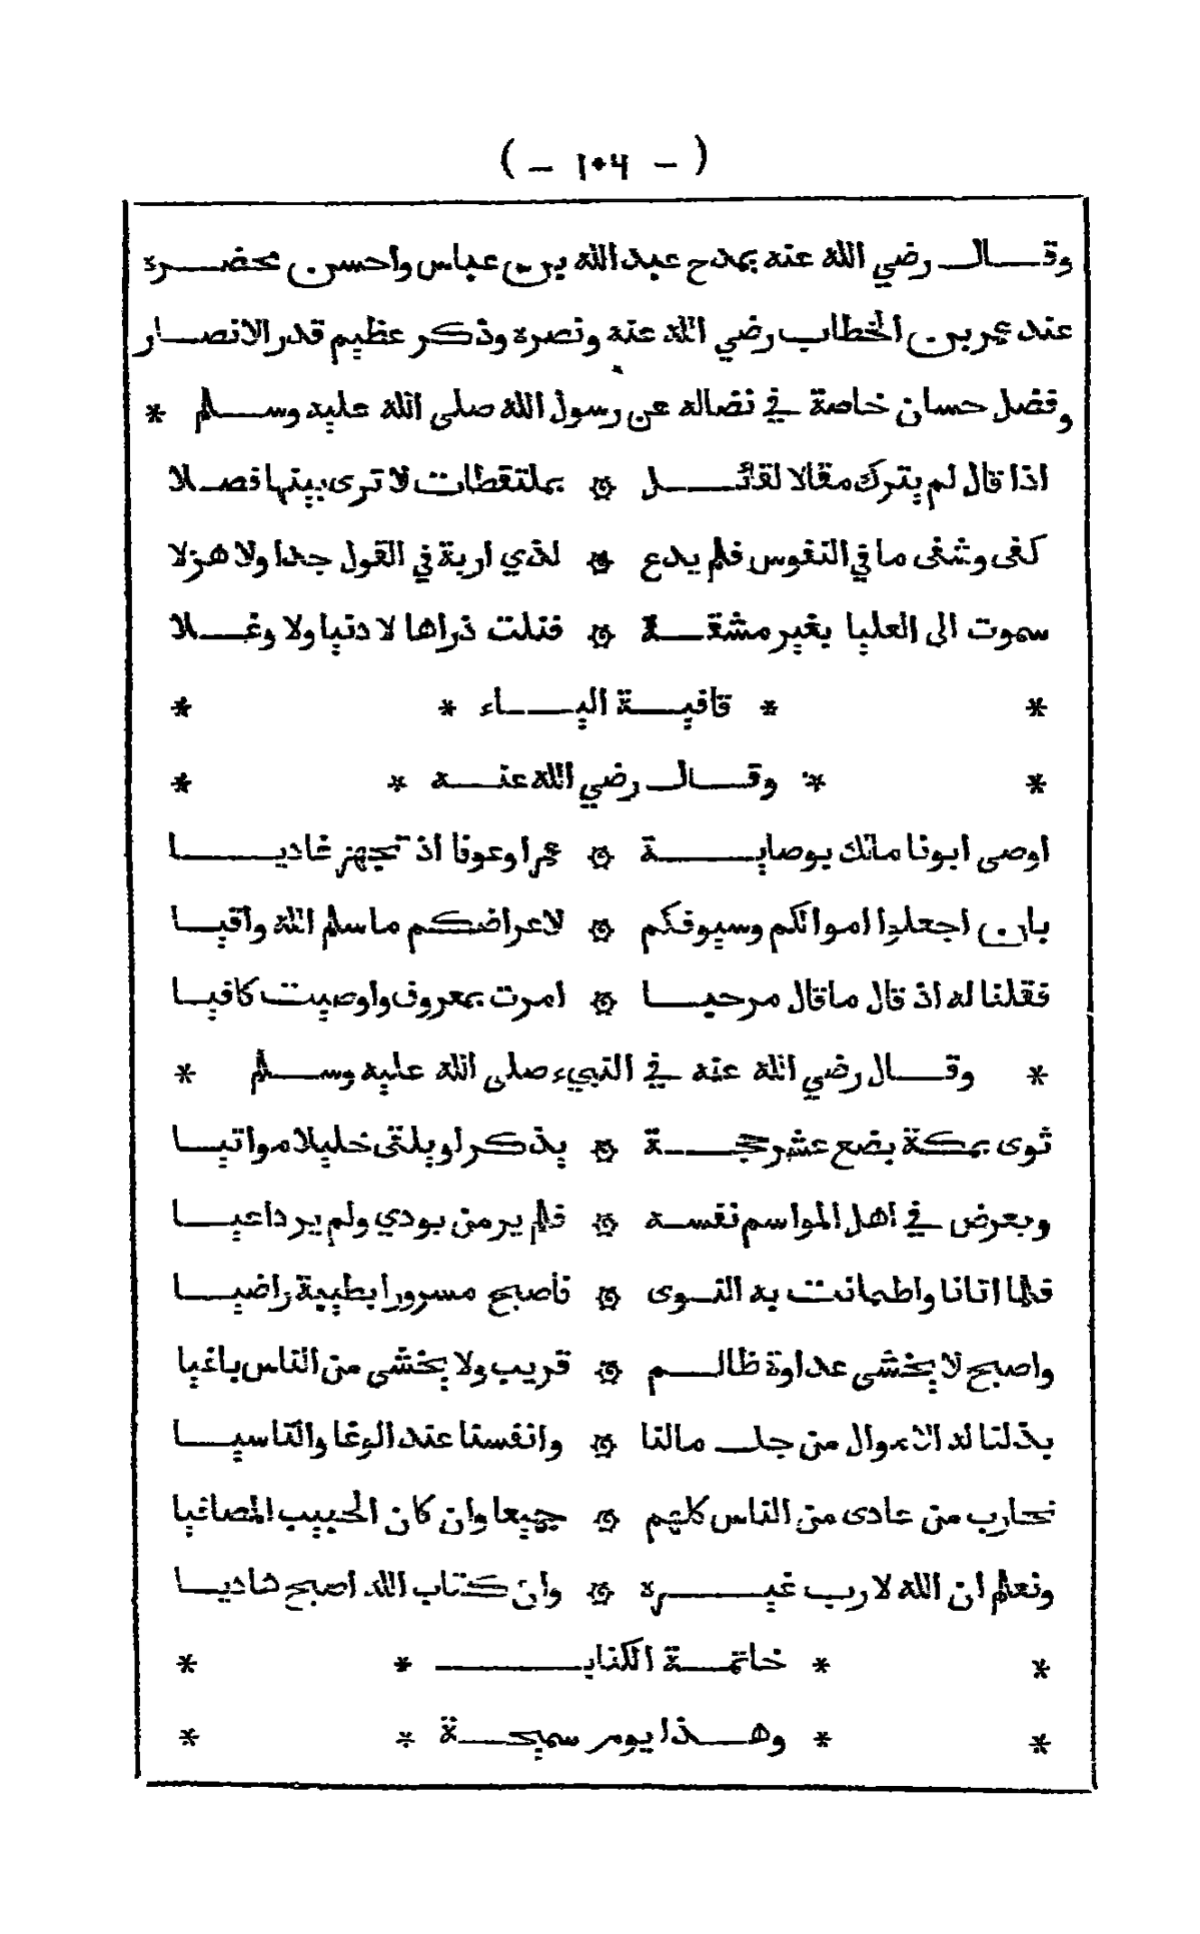 ( - ١٠٤ - )
وقال رضي الله عنه يمدح عبد الله بن عباس واحسن محضره
عند عمر بن الخطاب رضي الله عنه ونصره وذكر عظيم قدر الانصار
وفضل حسان خاصة في نضاله عن رسول الله صلى الله عليه وسلم *
اذا قال لم يترك مقالا لقائل ۞ بملتقطات لا ترى بينها فصلا
كفى وشفى ما في النفوس فلم يدع ۞ لذي اربة في القول جدا ولا هزلا
سموت الى العليا بغير مشقة ۞ فنلت ذراها لا دنيا ولا وغلا
* * قافية الياء * *
* * وقال رضي الله عنه * *
اوصى ابونا مالك بوصاية ۞ عمرا وعوفا اذ تجهز غاديا
بان اجعلوا اموالكم وسيوفكم ۞ لاعراضكم ما سلم الله واقيا
فقلنا له اذ قال ما قال مرحبا ۞ امرت بمعروف واوصيت كافيا
* وقال رضي الله عنه في النبيء صلى الله عليه وسلم *
ثوى بمكة بضع عشر حجة ۞ يذكر لو يلقى خليلا مواتيا
ويعرض في اهل المواسم نفسه ۞ فلم ير من يودي ولم ير داعيا
فلما اتانا واطمانت به النوى ۞ فأصبح مسرورا بطيبة راضيا
واصبح لا يخشى عداوة ظالم ۞ قريب ولا يخشى من الناس باغيا
بذلنا له الاموال من جل مالنا ۞ وانفسنا عند الوغا والتاسيا
نحارب من عادى من الناس كلهم ۞ جميعا وان كان الحبيب المصافيا
ونعلم ان الله لا رب غيره ۞ وان كتاب الله اصبح هاديا
* * خاتمة الكتاب * *
* * وهذا يوم سميحة * *